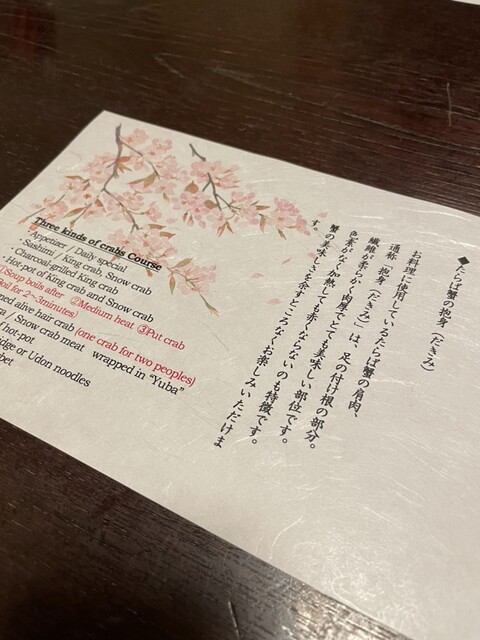 Three kinds of crabs Course
Appetizer / Daily special
・Sashimi / King crab, Snow crab
・Charcoal-grilled King crab
・Hot-pot of King crab and Snow crab
①Soup boils after ②Medium heat ③Put crab
boil for 2~3minutes)
alive hair crab (one crab for two peoples)
/ Snow crab meat wrapped in "Yuba"
f hot-pot
or Udon noodles
◆たらば蟹の抱身（だきみ）
お料理に使用しているたらば蟹の肩肉、
通称 抱身（だきみ）は、足の付け根の部分。
繊維が柔らかく肉厚でとても美味しい部位です。
色素がなく加熱しても赤くならないのも特徴です。
蟹の美味しさを余すところなくお楽しみいただけま
す。